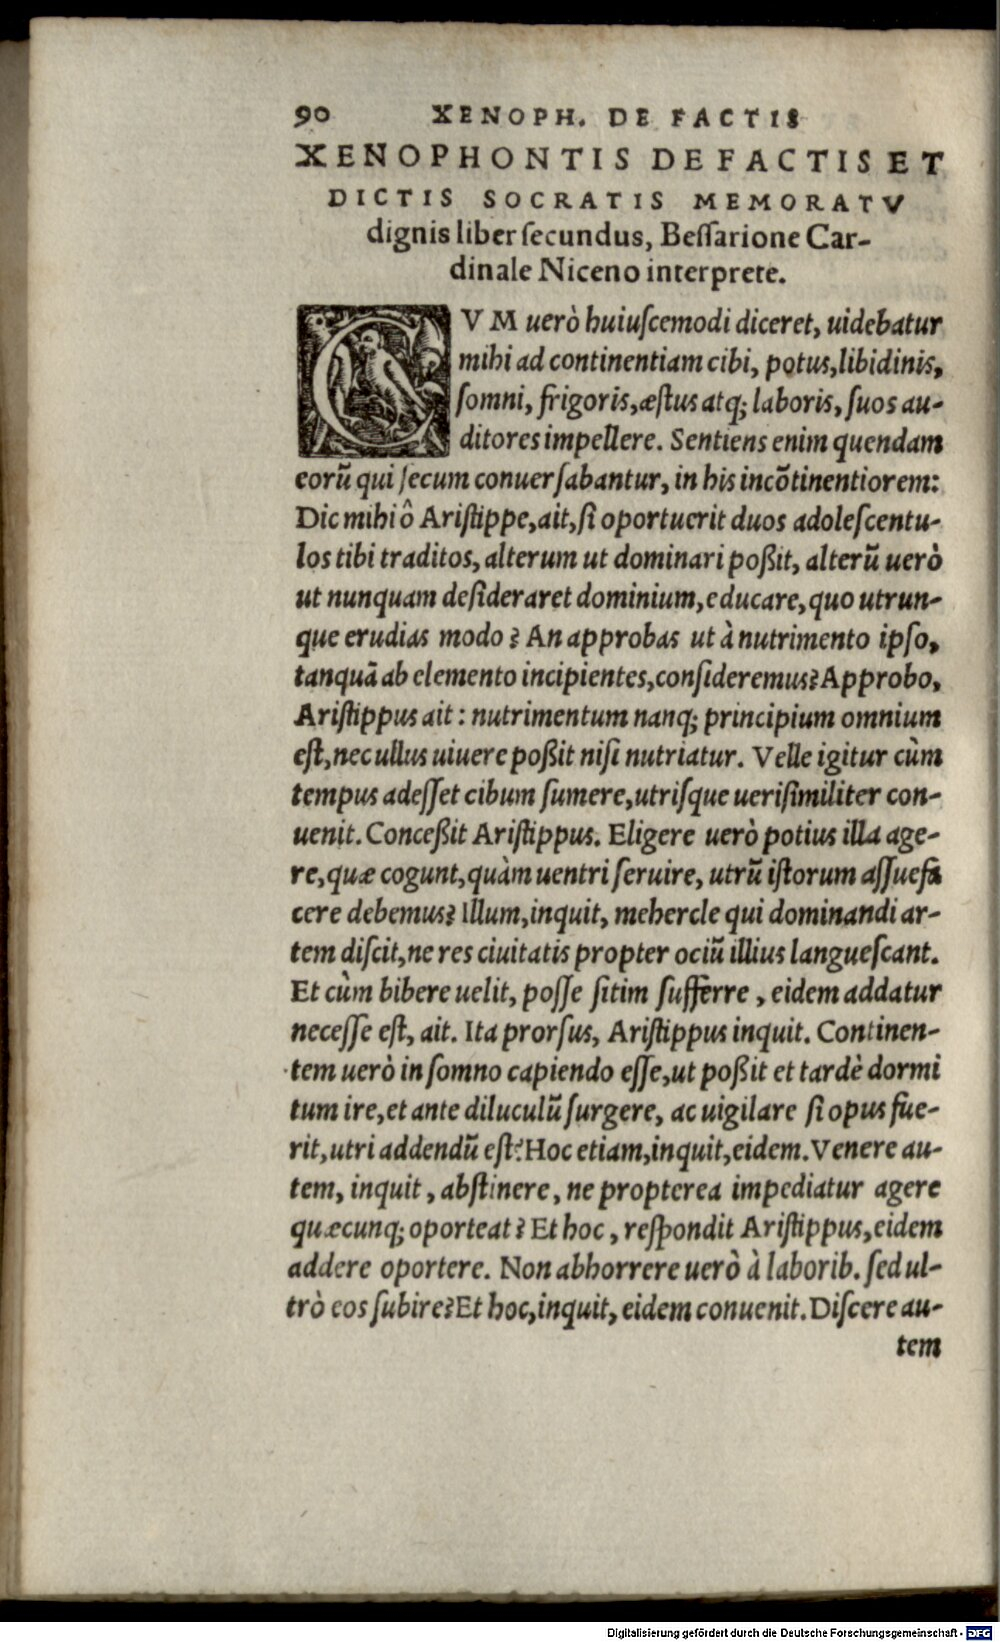 90 XENOPH. DE FACTIS
XENOPHONTIS DE FACTIS ET
DICTIS SOCRATIS MEMORATV
dignis liber ſecundus, Beſſarione Car-
dinale Niceno interprete.
CVM uerò huiuſcemodi diceret, uidebatur
mihi ad continentiam cibi, potus, libidinis,
ſomni, frigoris, æſtus atq; laboris, ſuos au-
ditores impellere. Sentiens enim quendam
eorũ qui ſecum conuerſabantur, in his incõtinentiorem:
Dic mihi ô Ariſtippe, ait, ſi oportuerit duos adoleſcentu-
los tibi traditos, alterum ut dominari poßit, alterũ uerò
ut nunquam deſideraret dominium, educare, quo utrun-
que erudias modo? An approbas ut à nutrimento ipſo,
tanquã ab elemento incipientes, conſideremus? Approbo,
Ariſtippus ait: nutrimentum nanq; principium omnium
eſt, nec ullus uiuere poßit niſi nutriatur. Velle igitur cùm
tempus adeſſet cibum ſumere, utriſque ueriſimiliter con-
uenit. Conceßit Ariſtippus. Eligere uerò potius illa age-
re, quæ cogunt, quàm uentri ſeruire, utrũ iſtorum aſſuefa
cere debemus? Illum, inquit, mehercle qui dominandi ar-
tem diſcit, ne res ciuitatis propter ociũ illius langueſcant.
Et cùm bibere uelit, poſſe ſitim ſufferre, eidem addatur
neceſſe eſt, ait. Ita prorſus, Ariſtippus inquit. Continen-
tem uerò in ſomno capiendo eſſe, ut poßit et tardè dormi
tum ire, et ante diluculũ ſurgere, ac uigilare ſi opus fue-
rit, utri addendũ eſt? Hoc etiam, inquit, eidem. Venere au-
tem, inquit, abſtinere, ne propterea impediatur agere
quæcunq; oporteat? Et hoc, reſpondit Ariſtippus, eidem
addere oportere. Non abhorrere uerò à laborib. ſed ul-
trò eos ſubire? Et hoc, inquit, eidem conuenit. Diſcere au-
tem
Digitalisierung gefördert durch die Deutsche Forschungsgemeinschaft - DFG